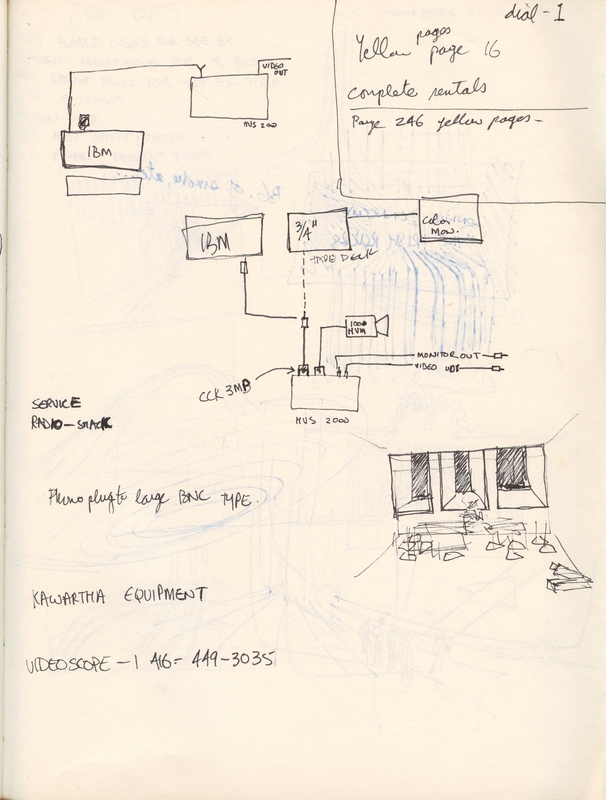 dial-1
pages
Yellow page 16
complete rentals
Page 246 yellow pages-
VIDEO
OUT
MVS 2000
IBM
IBM
3/4"
TAPE DECK
Color
Mon.
1000
HVM
MONITOR OUT
VIDEO OUT
CCK 3MB
MVS 2000
SERVICE
RADIO-SHACK
Phono plug to large BNC TYPE.
KAWARTHA EQUIPMENT
VIDEOSCOPE -1 416- 449-3035